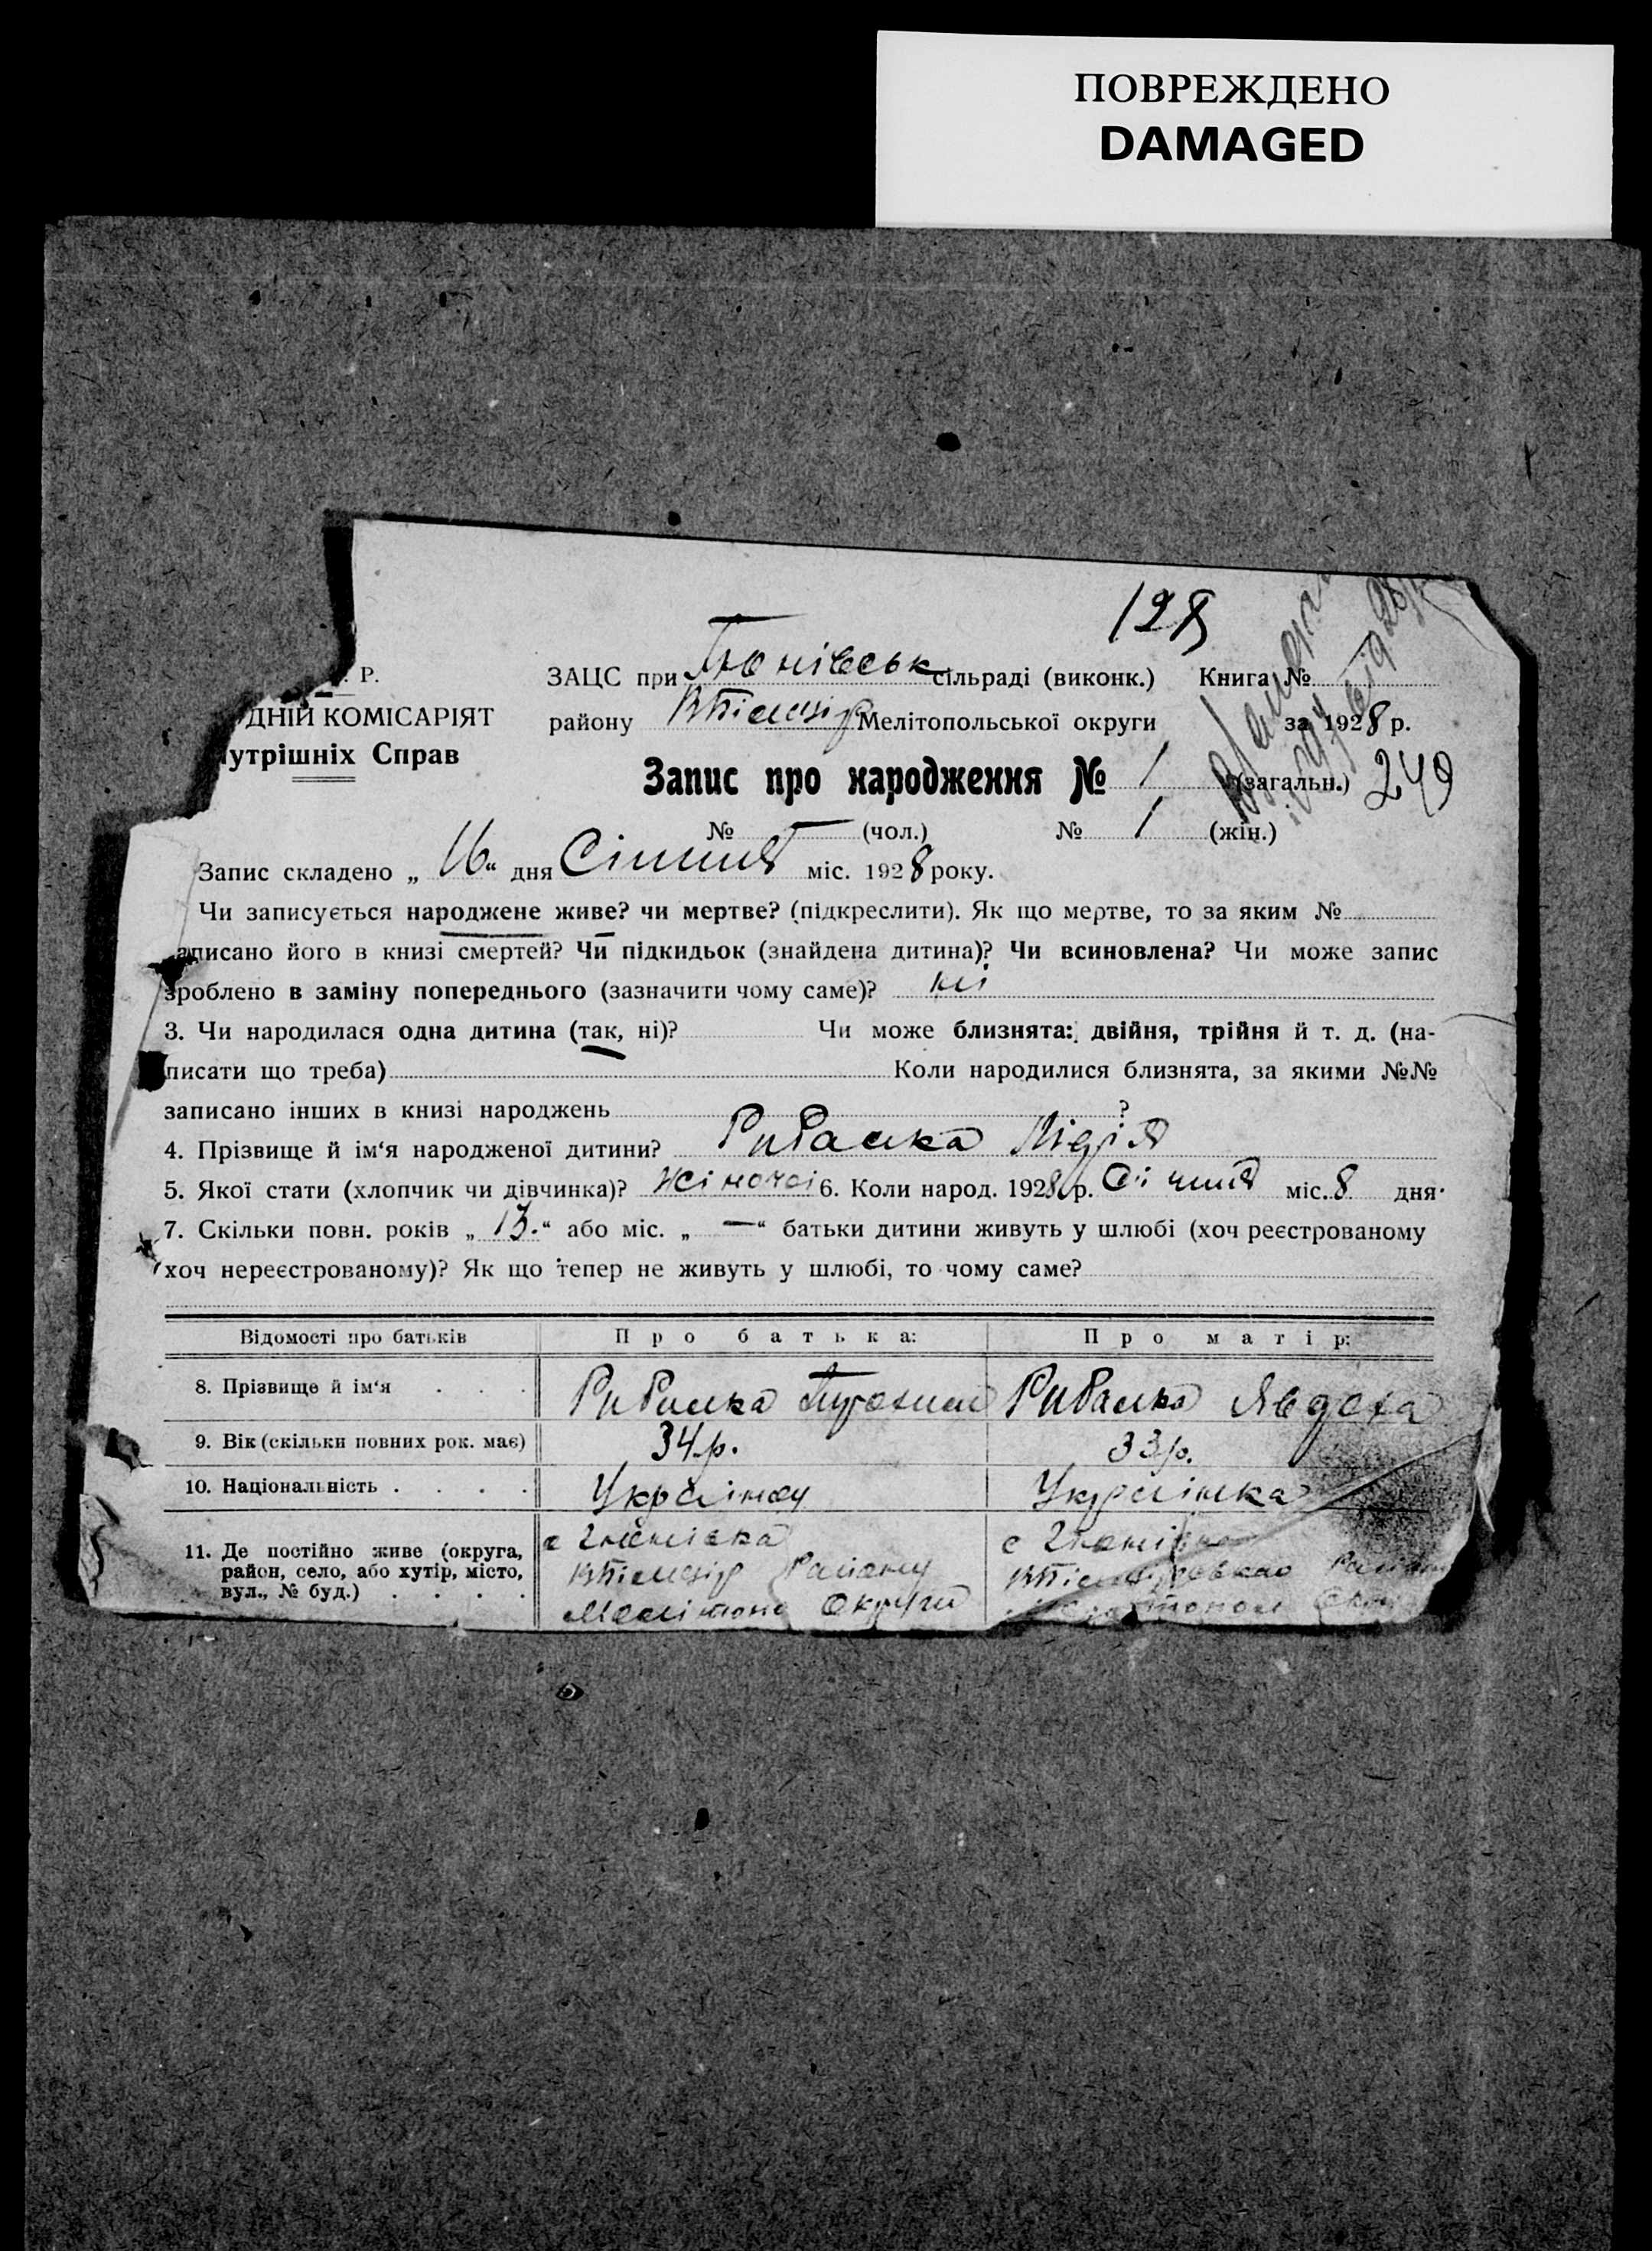 ПОВРЕЖДЕНО
DAMAGED
128
Р.
ЗАЦС при сільраді (виконк.) Книга №
ДНІЙ КОМІСАРІЯТ
району Мелітопольської округи за 1928 р.
утрішніх Справ
Запис про народження № 1 (загальн.) 249
№ — (чол.) № 1 (жін.)
Запис складено „16“ дня Січня міс. 1928 року.
Чи записується народжене живе? чи мертве? (підкреслити). Як що мертве, то за яким №
аписано його в книзі смертей? Чи підкидьок (знайдена дитина)? Чи всиновлена? Чи може запис
зроблено в заміну попереднього (зазначити чому саме)? ні
3. Чи народилася одна дитина (так, ні)? Чи може близнята: двійня, трійня й т. д. (на-
писати що треба) Коли народилися близнята, за якими №№
записано інших в книзі народжень ?
4. Прізвище й ім‘я народженої дитини? Рибалка Лідія
5. Якої стати (хлопчик чи дівчинка)? Жіночоі 6. Коли народ. 1928 р. Січня міс. 8 дня.
7. Скільки повн. років „13.“ або міс. „—“ батьки дитини живуть у шлюбі (хоч реєстрованому
хоч нереєстрованому)? Як що тепер не живуть у шлюбі, то чому саме?
Відомості про батьків Про батька: Про матір:
8. Прізвище й ім‘я . . . Рибалка Рибалка Явдоха
9. Вік (скільки повних рок. має) 34 р. 33 р.
10. Національність . . . . Українец Українка
11. Де постійно живе (округа,
район, село, або хутір, місто,
вул., № буд.) . . . .
с
Району
Округи
с